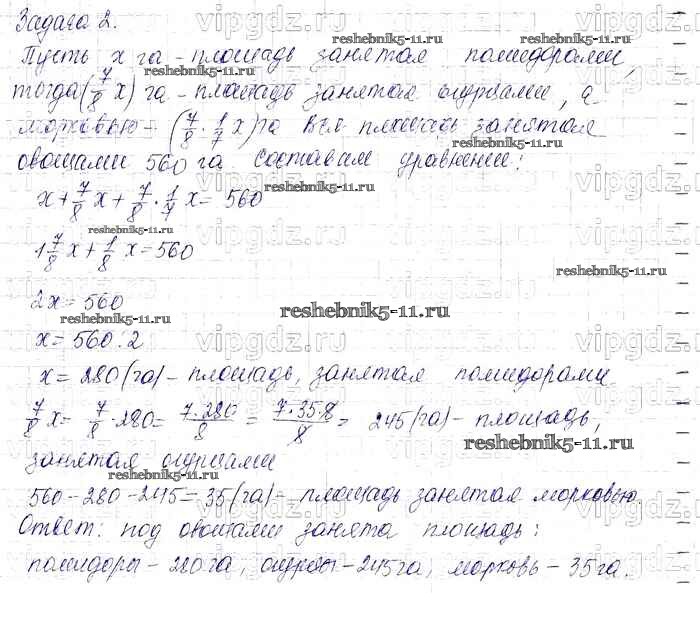 Задача 2.
Пусть x га - площадь занятая помидорами,
тогда (7/8 x) га - площадь занятая огурцами, а
морковью - (7/8 · 1/7 x) га Вся площадь занятая
овощами 560 га Составим уравнение:
x + 7/8 x + 7/8 · 1/7 x = 560
1 7/8 x + 1/8 x = 560
2x = 560
x = 560 : 2
x = 280 (га) - площадь, занятая помидорами
7/8 x = 7/8 · 280 = 7·280/8 = 7·35·8/8 = 245 (га) - площадь,
занятая огурцами
560 - 280 - 245 = 35 (га) - площадь занятая морковью.
Ответ: под овощами занята площадь:
помидоры - 280 га, огурцы - 245 га, морковь - 35 га.
vipgdz.ru
reshebnik5-11.ru